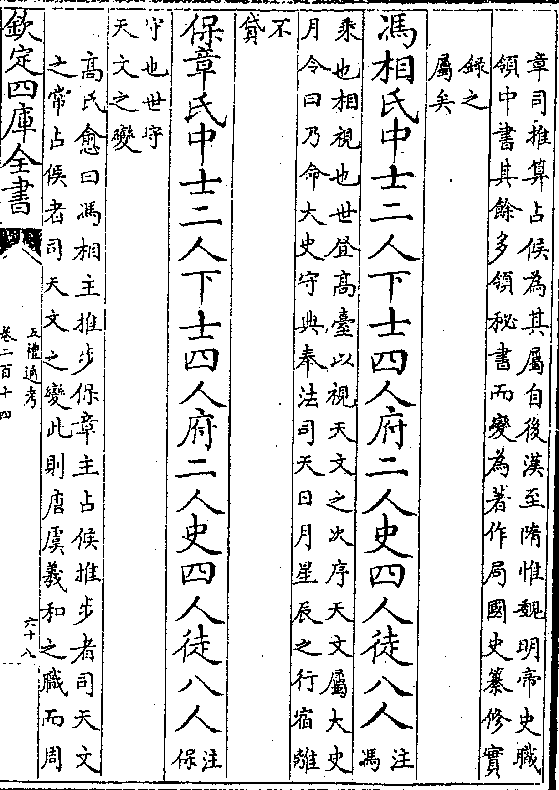 章司推算占候為其屬自後漢至隋惟魏明帝史職
領中書其餘多領秘書而變為著作局國史纂修實
録之
屬矣
馮相氏中士二人下士四人府二人史四人徒八人注
馮
乘也相視也世登高臺以視天文之次序天文屬大史
月令曰乃命大史守典奉法司天日月星辰之行宿離
不
貸
保章氏中士二人下士四人府二人史四人徒八人注
保
守也世守
天文之變
髙氏愈曰馮相主推步保章主占候推步者司天文
之常占候者司天文之變此則唐虞羲和之職而周
欽定四庫全書
五禮通考
卷二百十四
六十八